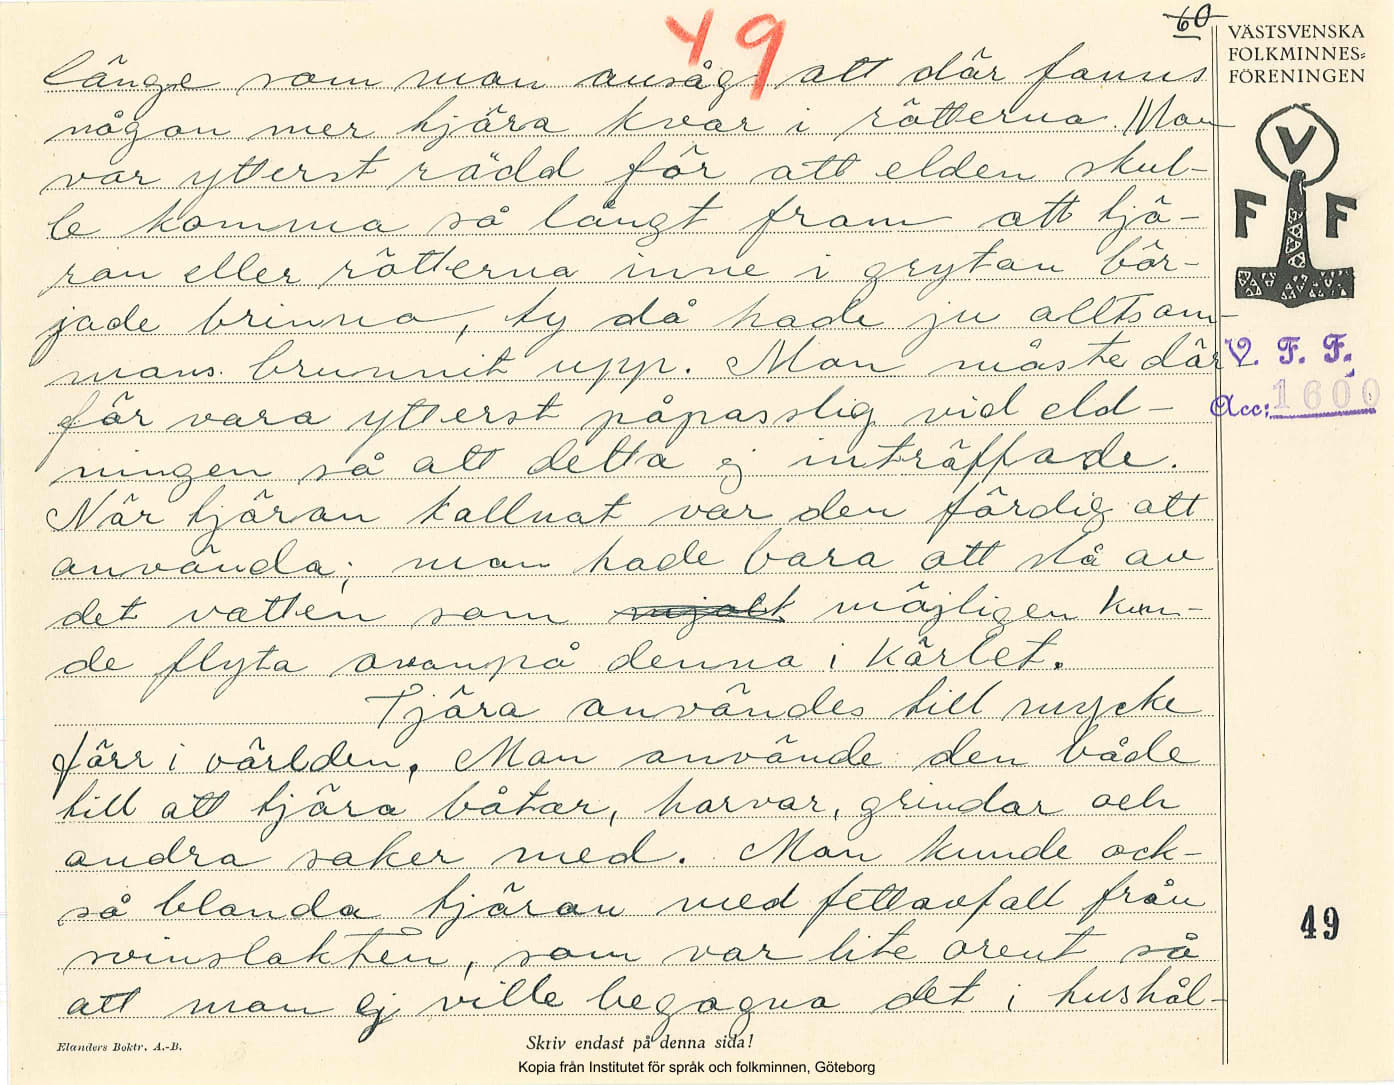 49
60
VÄSTSVENSKA
FOLKMINNES-
FÖRENINGEN
länge som man ansåg att där fanns
någon mer tjära kvar i rötterna. Man
var ytterst rädd för att elden skul-
le komma så långt fram att tjä-
ran eller rötterna inne i grytan bör-
jade brinna, ty då hade ju alltsam-
mans brunnit upp. Man måste där
för vara ytterst påpasslig vid eld-
ningen så att detta ej inträffade.
När tjäran kallnat var den färdig att
använda; man hade bara att slå av
det vatten som möjligen kun-
de flyta ovanpå denna i kärlet.
Tjära användes till mycke
förr i världen. Man använde den både
till att tjära båtar, harvar, grindar och
andra saker med. Man kunde ock-
så blanda tjäran med fettavfall från
svinslakten, som var lite orent så
att man ej ville begagna det i hushål-
V
F F
V. F. F.
Acc: 1600
49
Elanders Boktr. A.-B.
Skriv endast på denna sida!
Kopia från Institutet för språk och folkminnen, Göteborg